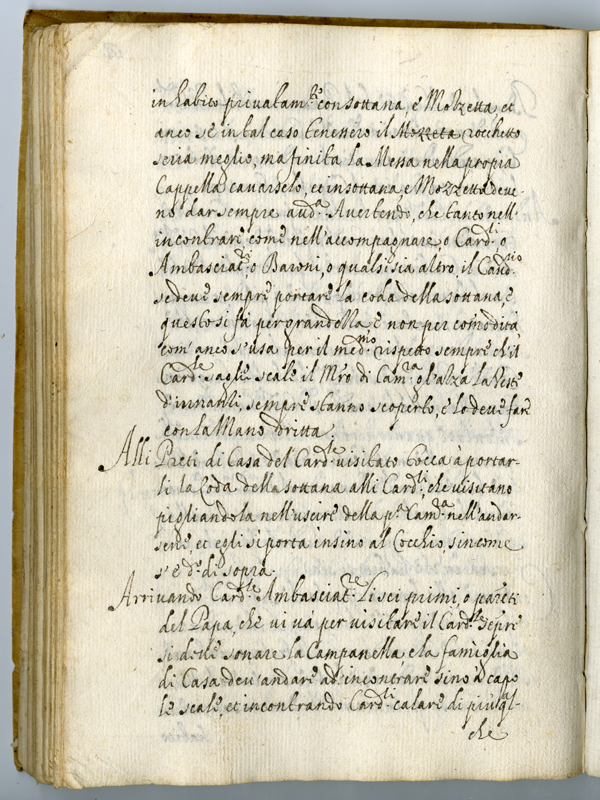 in habito privatam.te con sottana, e Mozzetta et
anco se in tal caso tenessero il Mozzeta rocchetto
seria meglio, ma finita la Messa nella propria
Cappella cavarselo, et in sottana, e Mozzetta deve-
no dar sempre aud.a Avertendo, che tanto nell'
incontrare come nell'accompagnare, o Card.li, o
Ambasciat.ri, o Baroni, o qualsisia altro, il Caud.rio
se deve sempre portare la coda della sottana, e
questo si fa per grandezza, e non per comodità,
com'anco s'usa per il med.mo rispetto sempre ch'il
Card.le saglie scale il M'ro di Cam.ra gl'alza la Veste
d'innanti, sempre stanno scoperto, e lo deve fare
con la Mano dritta.
Alli Preti di Casa del Card.le visitato tocca à portar-
li la Coda della sottana alli Card.li, che visitano
pigliandola nell'uscire della p.a Cam.a nell'andar-
sene, et egli si porta insino al Cocchio, sincome
s'è d.o di sopra.
Arrivando Card.le Ambasciat.re Lisci primi, o pareti
del Papa, che vi và per visitare il Card.le sepre
si deve sonare la Campanella, e la famiglia
di Casa dev'andare ad incontrare sino à capo
le scale, et incontrando Card.li calare di più ql-
che